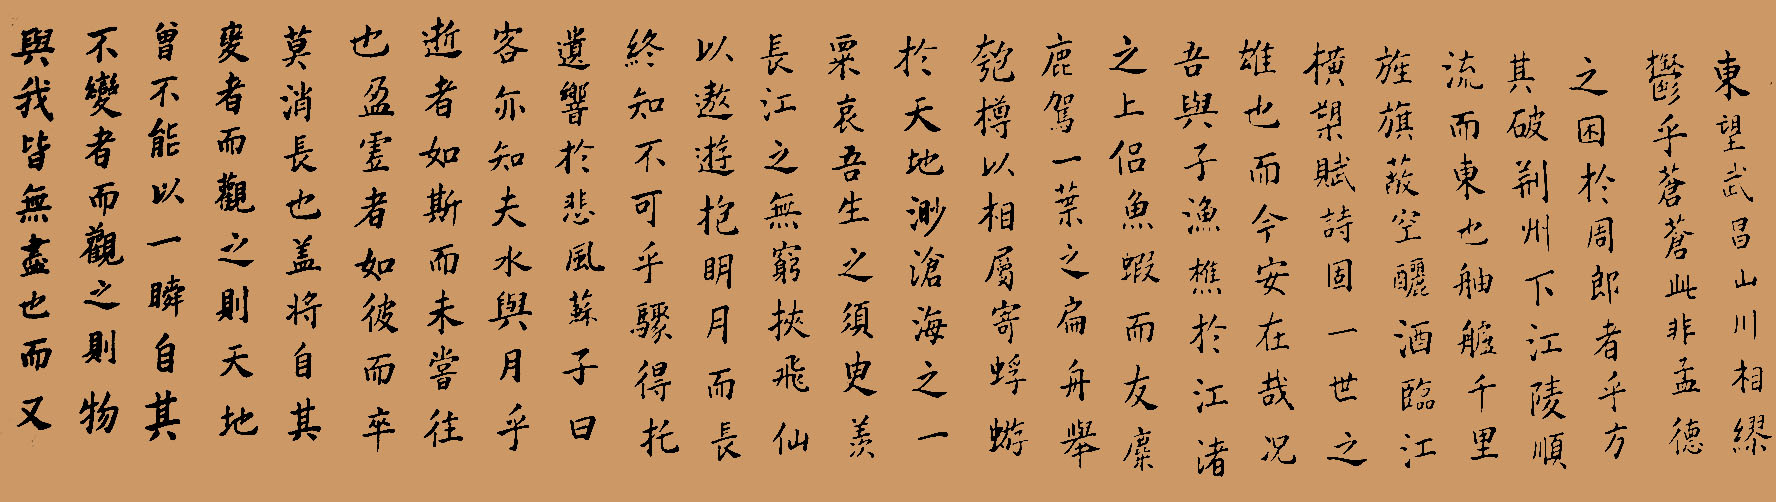 東望武昌山川相繆
鬱乎蒼蒼此非孟德
之困於周郎者乎方
其破荆州下江陵順
流而東也舳艫千里
旌旗蔽空釃酒臨江
橫槊賦詩固一世之
雄也而今安在哉况
吾與子漁樵於江渚
之上侶魚蝦而友麋
鹿駕一葉之扁舟舉
匏樽以相屬寄蜉蝣
於天地渺滄海之一
粟哀吾生之須臾羨
長江之無窮挾飛仙
以遨遊抱明月而長
終知不可乎驟得托
遺響於悲風蘇子曰
客亦知夫水與月乎
逝者如斯而未嘗往
也盈虛者如彼而卒
莫消長也盖将自其
變者而觀之則天地
曾不能以一瞬自其
不變者而觀之則物
與我皆無盡也而又